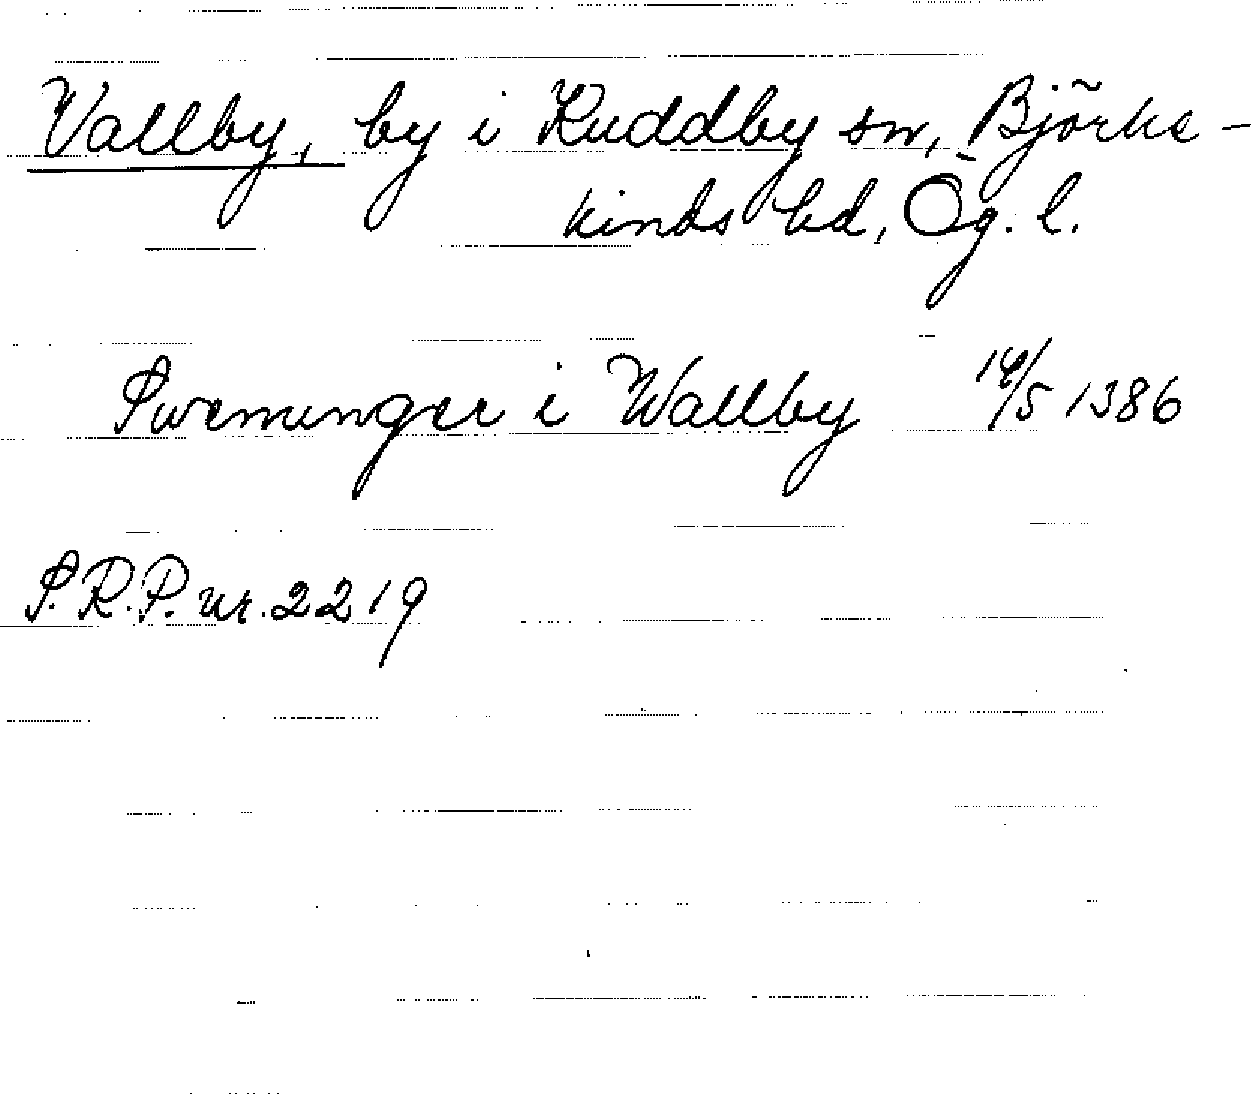 Vallby, by i Kuddby sn, Björke-
kinds hd, Ög. l.
Swenunger i Wallby 14/5 1386
S.R.P. nr. 2219